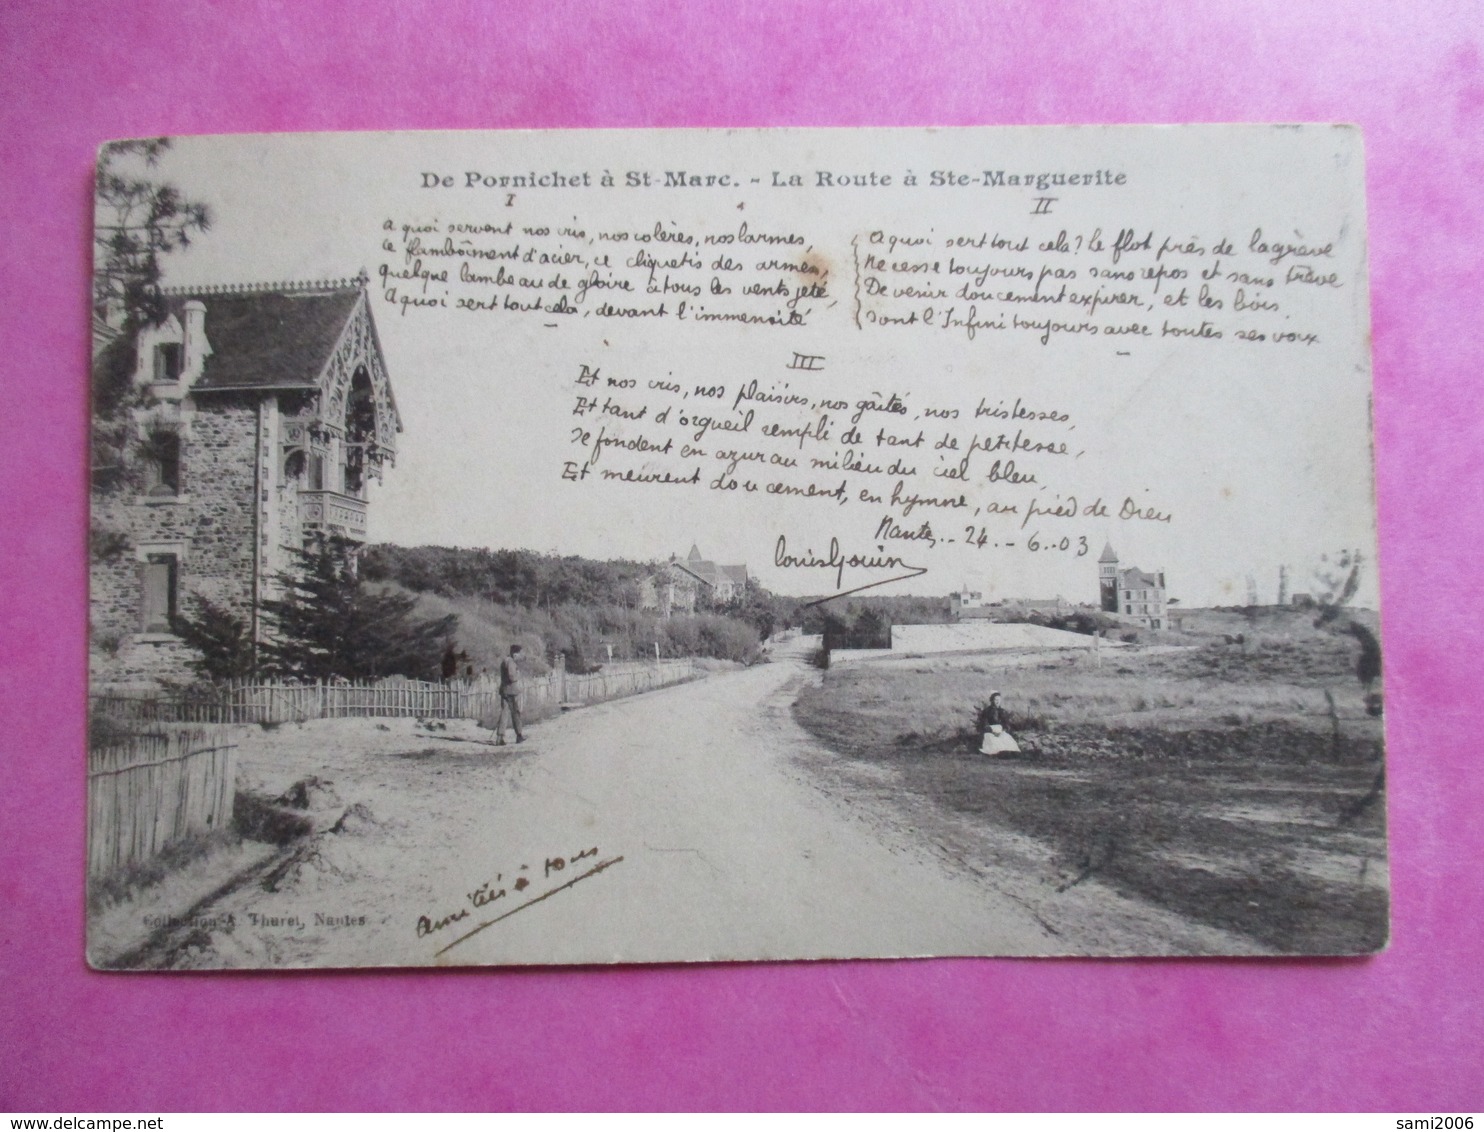 De Pornichet à St-Marc. - La Route à Ste-Marguerite
I
A quoi servent nos cris, nos colères, nos larmes,
Ce flamboîment d'acier, ce cliquetis des armes,
Quelque lambeau de gloire à tous les vents jeté,
A quoi sert tout cela, devant l'immensité
II
A quoi sert tout cela? Le flot près de la grève
Ne cesse toujours pas sans repos et sans trève
De venir doucement expirer, et les bois
Sont l'Infini toujours avec toutes ses voix
III
Et nos cris, nos plaisirs, nos gâités, nos tristesses,
Et tant d'orgueil rempli de tant de petitesse,
Se fondent en azur au milieu du ciel bleu,
Et meurent doucement, en hymne, au pied de Dieu
Nantes.. 24. - 6..03
Louis Gouin
amitiés à tous
Collection A. Thuret, Nantes
delcampe.net
sami2006